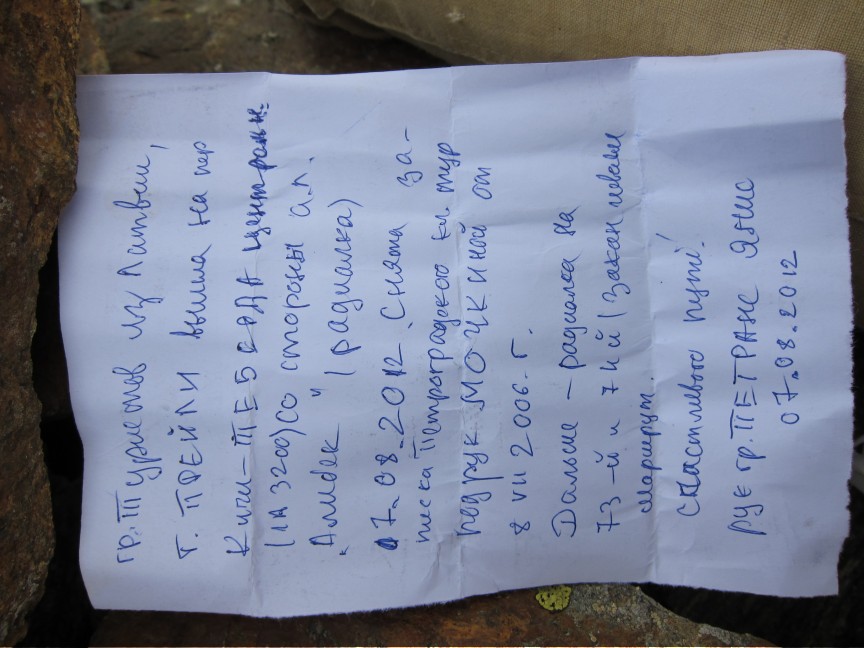 гр. Туристов из Латвии,
г. ПРЕЙЛИ вышла на пер
Кичи-ТЕБЕРДА централь.
(1А 3200) со стороны а.л.
"Алибек" (радиалка)
07.08.2012. Снята за-
писка Петроградского кл. тур
под рук МОЧКИНОЙ от
8 VII 2006. г.
Дальше - радиалка на
73-й и 74й (Заканчиваем
маршрут.
счастливого пути!
рук гр. ПЕТРАНС ЯНИС
07.08.2012